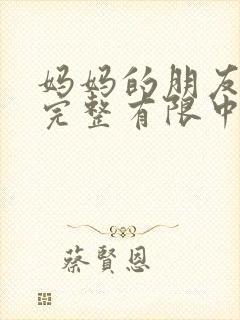 妈妈的朋友
完整有限中
蔡賢恩